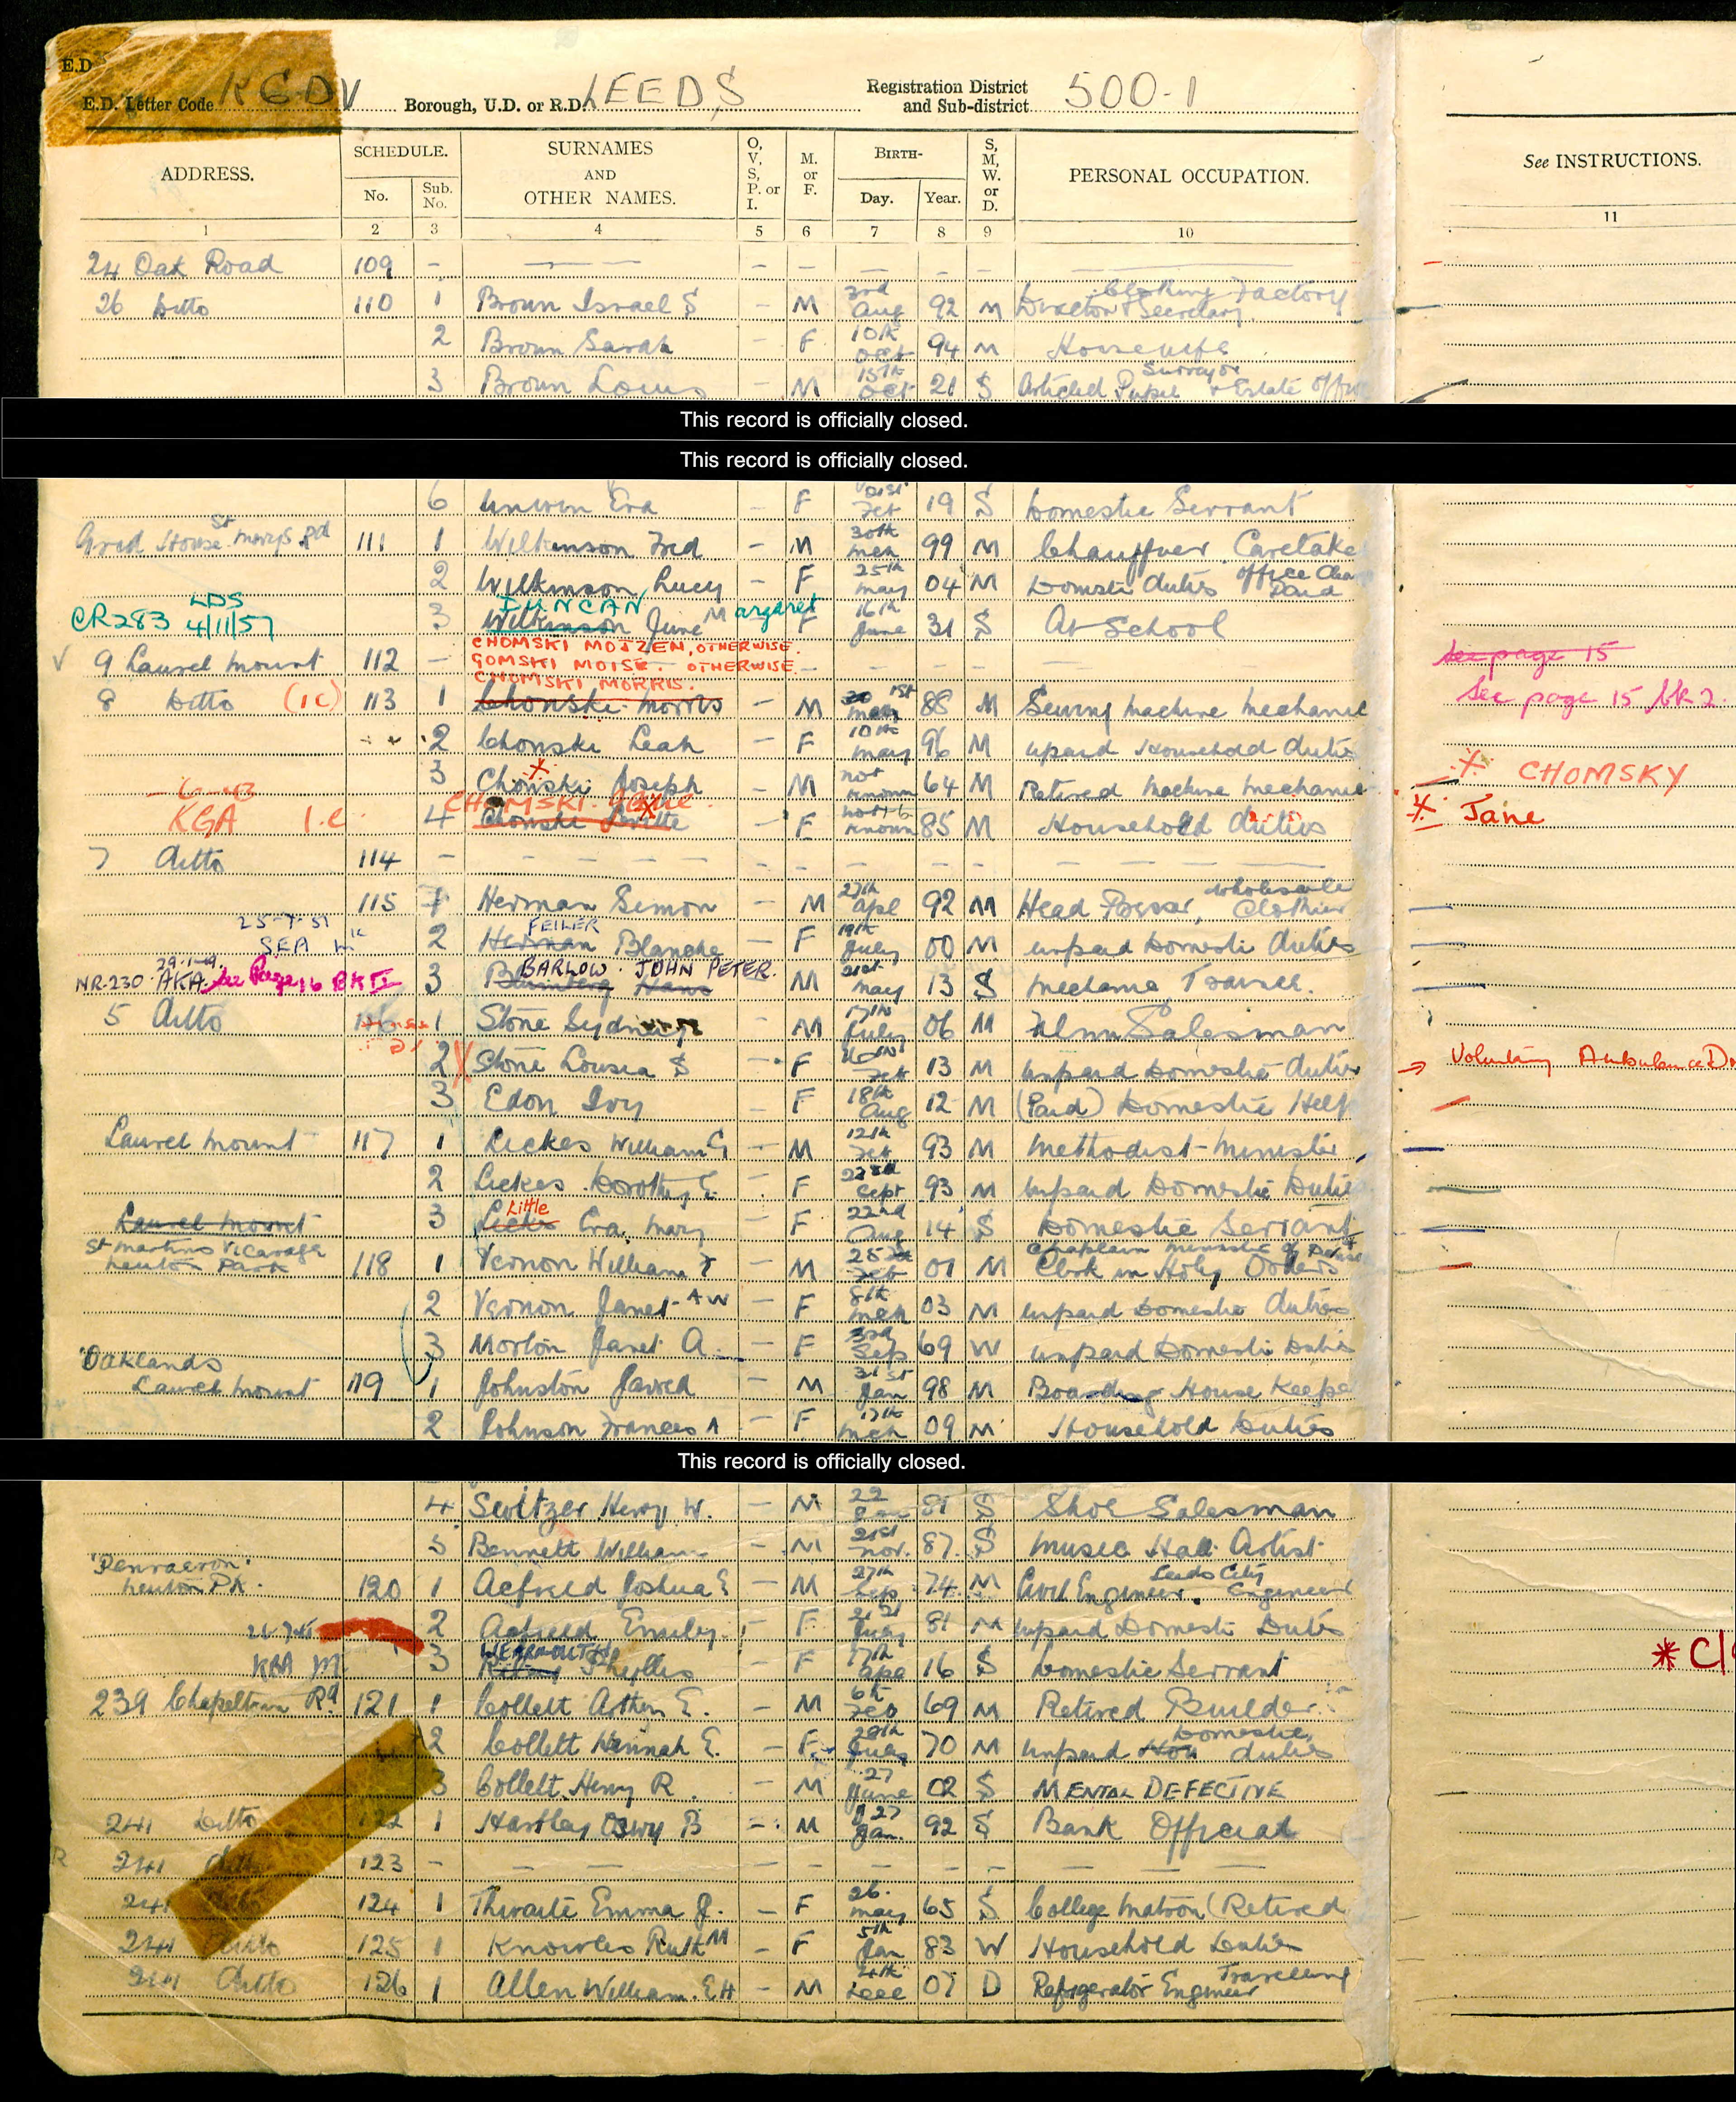 E.D.
E.D. Letter Code KGDV Borough, U.D. or R.D. LEEDS Registration District and Sub-district 500-1
ADDRESS. SCHEDULE. No. Sub. No. SURNAMES AND OTHER NAMES. O, V, S, P. or I. M. or F. BIRTH- Day. Year. S, M, W. or D. PERSONAL OCCUPATION. See INSTRUCTIONS.
1 2 3 4 5 6 7 8 9 10 11
24 Oak Road 109 - — - - - - - —
26 Ditto 110 1 Broun Israel S - M 3rd Aug 92 M Director & Secretary Clothing Factory
2 Broun Sarah - F 10th Oct 94 M Housewife
3 Broun Louis - M 15th Oct 21 S Articled Pupil Surveyor & Estate Office
This record is officially closed.
This record is officially closed.
6 Unwin Eva - F Oct 19 S Domestic Servant
House St Marys Rd 111 1 Wilkinson Fred - M 30th Mch 99 M Chauffuer Caretaker
2 Wilkinson Lucy - F 25th May 04 M Domestic Duties Office Paid
CR283 LDS 4/11/57 3 DUNCAN Wilkinson June Margaret F 16th June 31 S At School
CHOMSKI MOTZEN, OTHERWISE.
V 9 Laurel Mount 112 - GOMSKI MOISE. OTHERWISE - - - - See page 15
CHOMSKI MORRIS.
8 Ditto (1C) 113 1 Chonski Morris - M 1st 88 M Sewing Machine Mechanic See page 15 bk 2
2 Chonski Leah - F 10th May 96 M Unpaid Household Duties
3 Chonski Joseph - M not known 64 M Retired Machine Mechanic CHOMSKY
6-43
KGA 1.C. 4 CHOMSKI. Chonski - F not known 85 M Household Duties Jane
7 Ditto 114 - - - - - - -
115 1 Herman Simon M 27th Apl 92 M Head Presser, Wholesale Clothier
25-7-51 SEA 2 FEILER Herman Blanche - F 19th July 00 M Unpaid Domestic Duties
NR-230 AKA See Page 16 BK II 3 BARLOW. JOHN PETER. M 21st May 13 S Mechanic
5 Ditto 116 1 Stone Sydney - M 17th July 06 M Film Salesman
2 Stone Lousia S - F Feb 13 M Unpaid Domestic Duties Voluntary Ambulance
3 Edon Ivy - F 18th Aug 12 M (Paid) Domestic Help
Laurel Mount 117 1 Lickes William G - M 12th Feb 93 M Methodist Minister
2 Lickes Dorothy E - F Sept 93 M Unpaid Domestic Duties
Laurel Mount 3 Little Eva Mary - F 22nd Aug 14 S Domestic Servant
St Martins Vicarage Newton Park 118 1 Vernon William F - M Feb 01 M Clerk in Holy Orders
2 Vernon Janet A W - F 8th Mch 03 M Unpaid Domestic Duties
3 Morton Janet A. - F 3rd Sep 69 W Unpaid Domestic Duties
'Oaklands
Laurel Mount 119 1 Johnston Jared - M 31st Jan 98 M Boarding House Keeper
2 Johnson Frances A - F 17th Mch 09 M Household Duties
This record is officially closed.
4 Switzer Henry W. - M 22 81 S Shoe Salesman
5 Bennett William - M 21st Nov. 87 S Music Hall Artist
'Penraevon'
Newton Pk. 120 1 Acfield Joshua E - M 27th Sep 74 M Civil Engineer. Leeds City Engineer
2 Acfield Emily - F 21st 81 M Unpaid Domestic Duties
KBA M 3 WEARMOUTH Phyllis - F 17th Apl 16 S Domestic Servant *C
239 Chapeltown Rd 121 1 Collett Arthur E. - M 6th Feb 69 M Retired Builder
2 Collett Hannah E. - F 70 M Unpaid Domestic Duties
3 Collett Henry R - M 27 June 02 S MENTAL DEFECTIVE
241 Ditto 122 1 Hartley Oswy B - M 27 Jan. 92 S Bank Official
R 241 Ditto 123 - - - - - - -
241 124 1 Thwaite Emma J. - F 26. May 65 S College Matron (Retired
241 Ditto 125 1 Knowles Ruth M - F 5th Jan 83 W Household Duties
241 Ditto 126 1 Allen William. E H - M 07 D Refrigerator Engineer Travelling